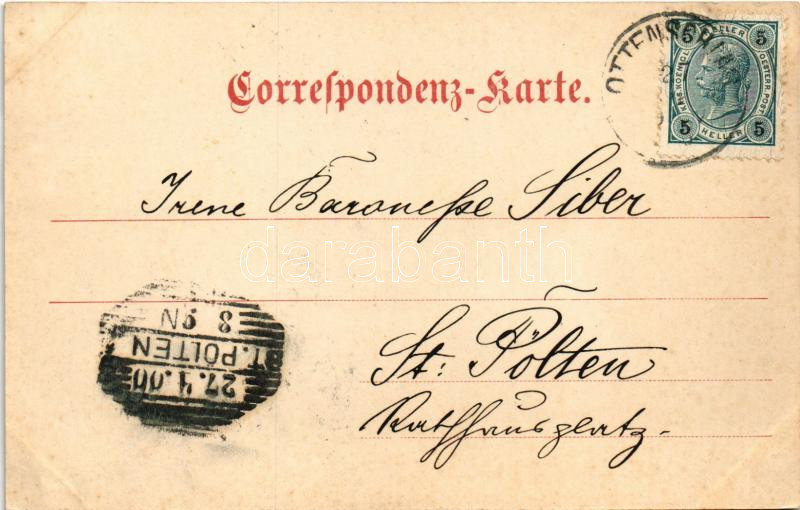 Correspondenz-Karte.
5 HELLER 5
KAIS. KOENIGL. OESTERR. POST
5 HELLER 5
Irene Baronesse Siber
darabanth
St: Pölten
Rathhausplatz.
27.1.00
ST. PÖLTEN
8 N